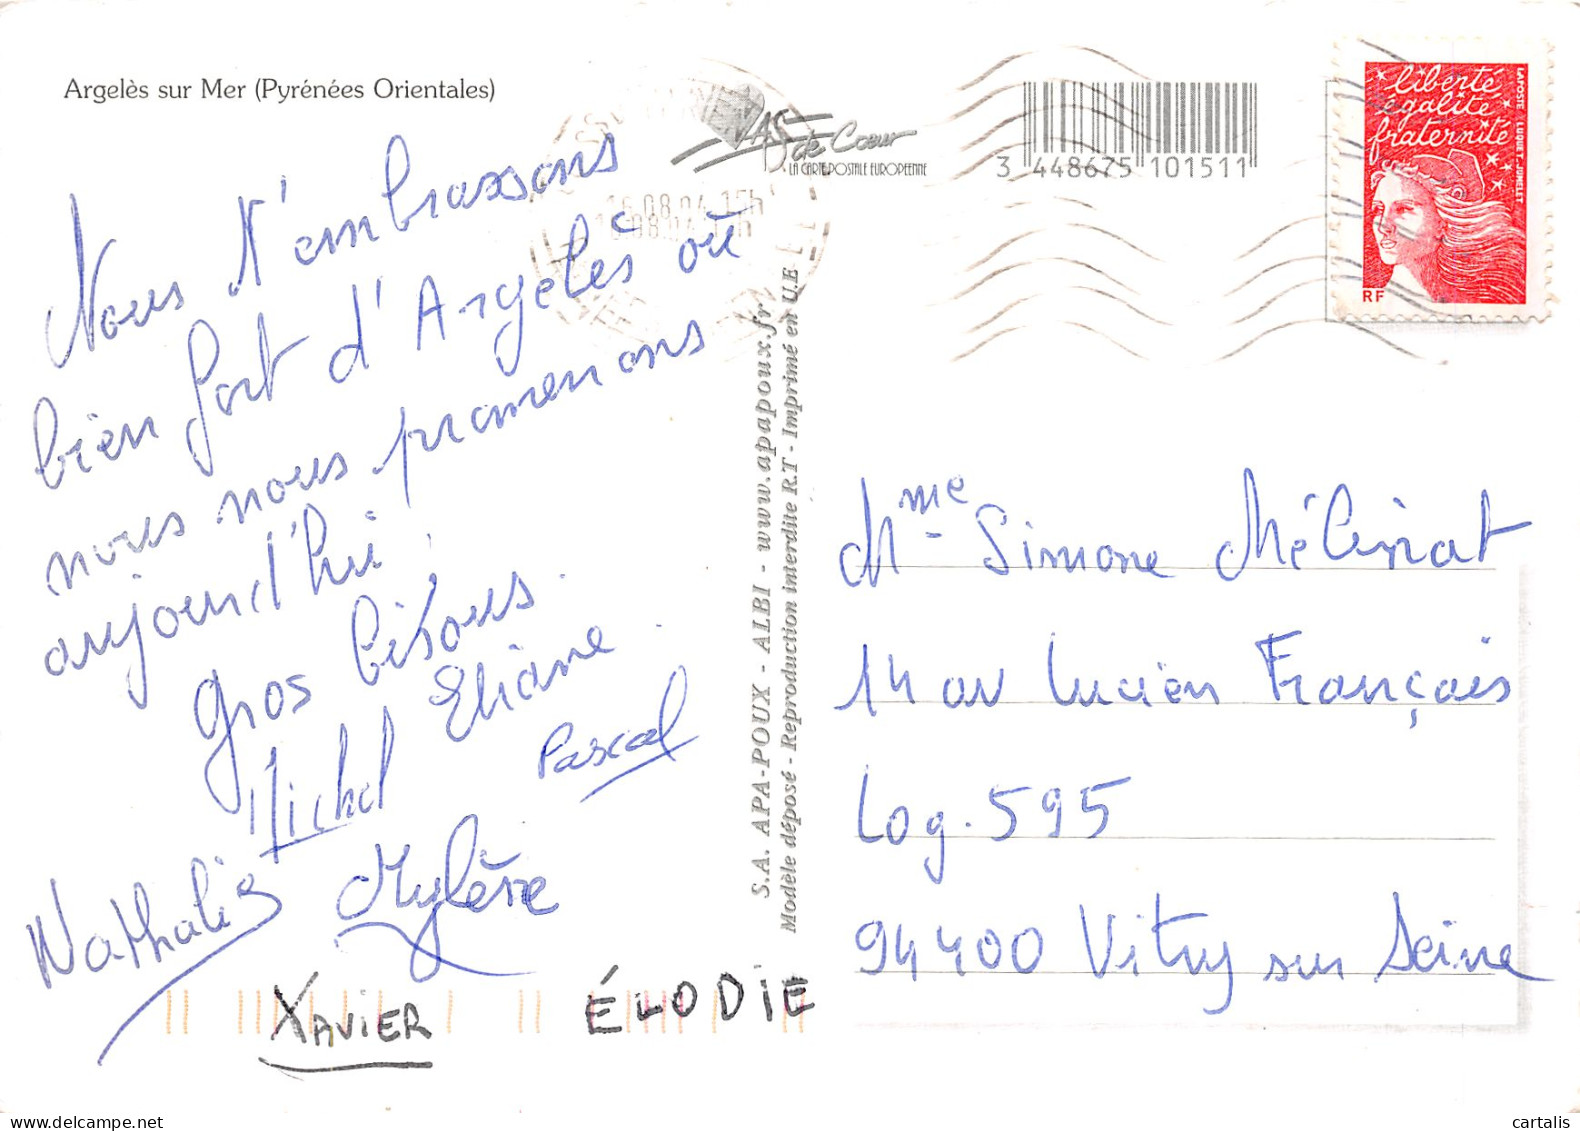 Argelès sur Mer (Pyrénées Orientales)
Nous t'embrassons
bien fort d'Argelès où
nous nous promenons
aujourd'hui.
Gros bisous.
Michel Eliane.
Pascal
Nathalie Mylène
XAVIER ÉLODIE
AS de Coeur
LA CARTE POSTALE EUROPEENNE
16.08.04 15h
S.A. APA-POUX - ALBI - www.apapoux.fr
Modèle déposé - Reproduction interdite R.T - Imprimé en U.E
3 448675 101511
liberté
égalité
fraternité
LAPOSTE LUQUET-JUMELET
RF
Mme Simone Mélinat
14 av Lucien Français
Log. 595
94400 Vitry sur Seine
cartalis